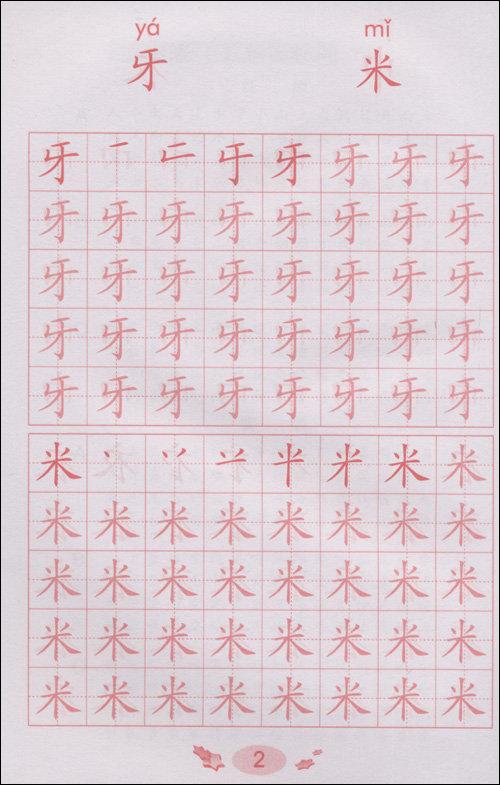 yá mǐ
牙 米
牙 一 二 于 牙 牙 牙 牙
牙 牙 牙 牙 牙 牙 牙 牙
牙 牙 牙 牙 牙 牙 牙 牙
牙 牙 牙 牙 牙 牙 牙 牙
牙 牙 牙 牙 牙 牙 牙 牙
米 丶 丷 䒑 米 米 米
米 米 米 米 米 米 米 米
米 米 米 米 米 米 米 米
米 米 米 米 米 米 米 米
米 米 米 米 米 米 米 米
2